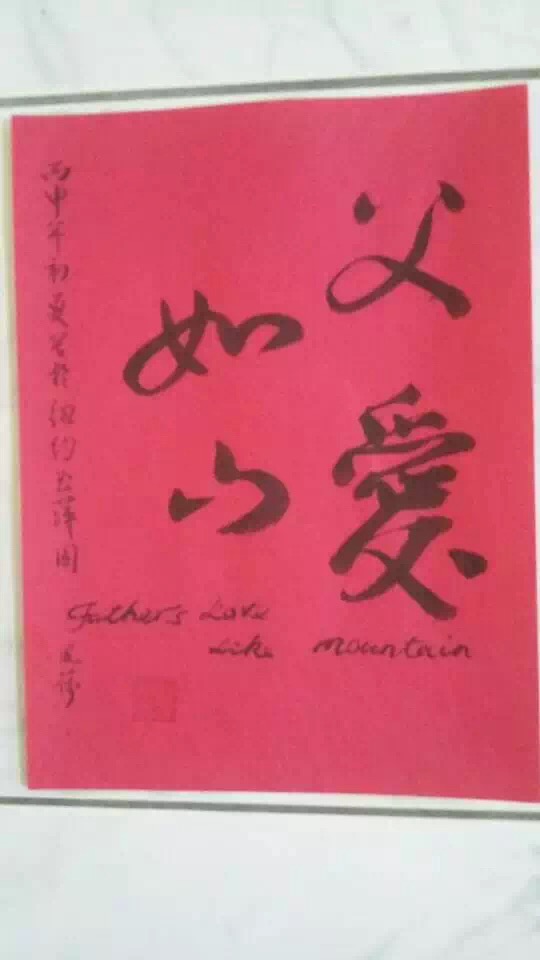 父愛
如山
丙申年初夏書於紐約
Father's Love
Like mountain